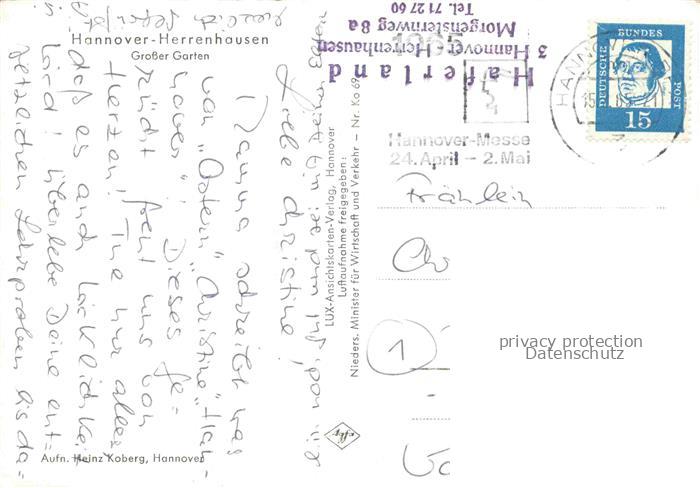 Hannover-Herrenhausen
Großer Garten
Liebe Christine!
Mama schreibt was
von „Ostern" „Christine" „Han-
nover"! Dieses Ge-
rücht freut uns von
Herzen! Tue nur alles
daß es auch Wirklichkeit
wird! Überlebe Deine ent-
setzlichen Lehrproben bis da-
Aufn. Heinz Koberg, Hannover
LUX-Ansichtskarten-Verlag, Hannover
Luftaufnahme freigegeben:
Nieders. Minister für Wirtschaft und Verkehr – Nr. Ko 69
Haferland
3 Hannover-Herrenhausen
Morgensternweg 8a
Tel. 71 27 60
1965
Hannover-Messe
24. April – 2. Mai
HANN
DEUTSCHE
BUNDES
POST
15
Fräulein
1
privacy protection
Datenschutz